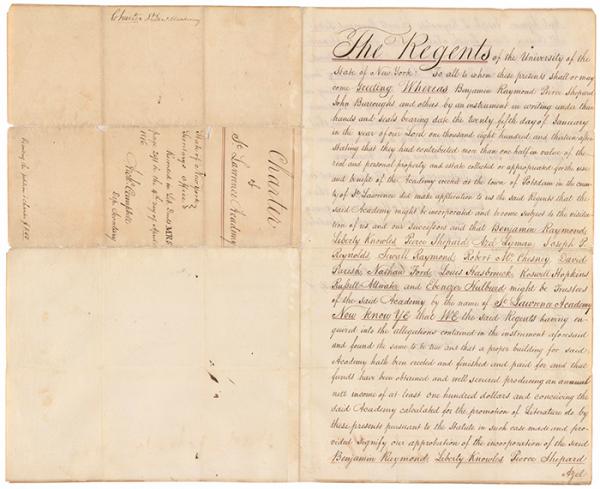 Charter St. Lawrence Academy
Charter
of
St. Lawrence Academy
State of New York
Secretary's Office
Recorded in Lib. Deeds M.R.S.
page 249 in the 9th day of April
1816
Arch. Campbell
Dep. Secretary
The Regents of the University of the
State of New York: To all to whom these presents shall or may
come Greeting Whereas Benjamin Raymond Pierce Shepard
John Burroughs and others by an instrument in writing under their
hands and seals bearing date the twenty fifth day of January
in the year of our Lord one thousand eight hundred and thirteen after
stating that they had contributed more than one half in value of the
real and personal property and estate collected or appropriated for the use
and benefit of the Academy erected at the town of Potsdam in the coun-
ty of St. Lawrence did make application to us the said Regents that the
said Academy might be incorporated and become subject to the visitation
of us and our successors and that Benjamin Raymond,
Liberty Knowles Pierce Shepard Azel Lyman, Joseph P.
Reynolds, Sewall Raymond, Robert Mc. Chesney, David
Parish, Nathan Ford, Louis Hasbrouck, Roswell Hopkins
Russell Attwater and Ebenezer Hulburd might be Trustees
of the said Academy by the name of St. Lawrence Academy
Now Know YE that WE the said Regents having en-
quired into the allegations contained in the instrument aforesaid
and found the same to be true and that a proper building for said
Academy hath been erected and finished and paid for and that
funds have been obtained and well secured producing an annual
nett income of at least one hundred dollars and conceiving the
said Academy calculated for the promotion of Literature do by
these presents pursuant to the Statute in such case made and pro-
vided signify our approbation of the incorporation of the said
Benjamin Raymond, Liberty Knowles Pierce Shepard
Azel